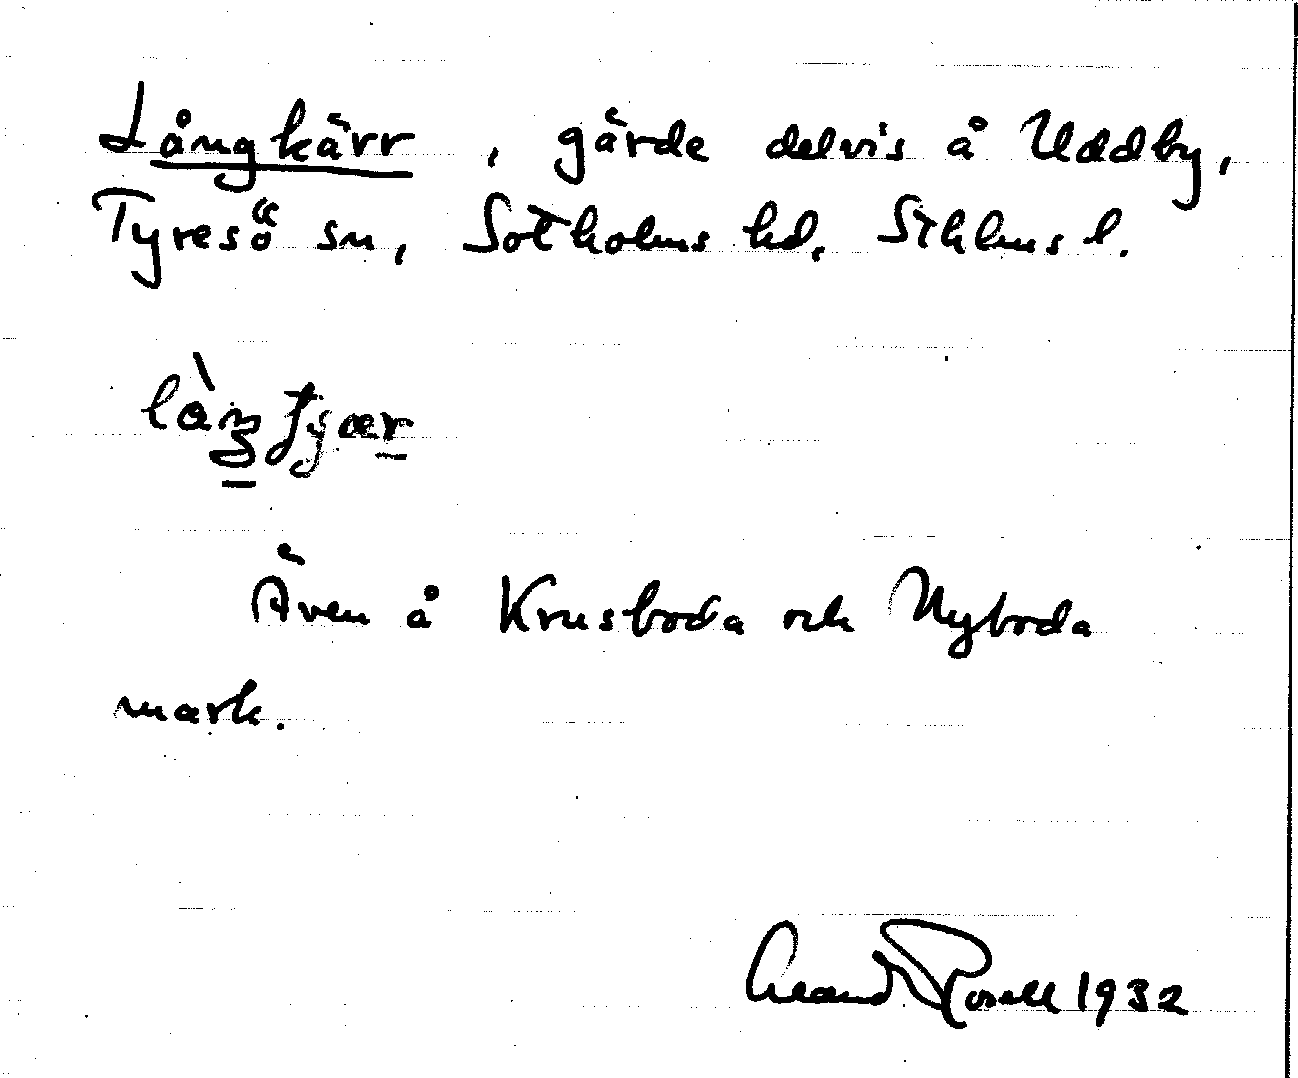 Långkärr, gärde delvis å Uddby,
Tyresö sn, Sotholms hd, Sthlms l.
Även å Krusboda och Nyboda
mark.
1932